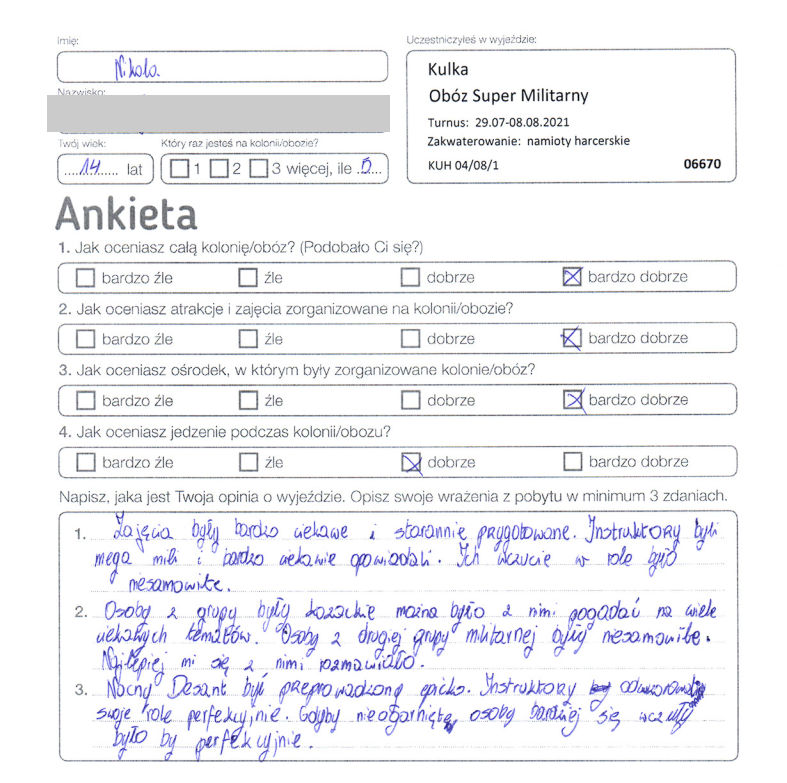 Imię:
Uczestniczyłeś w wyjeździe:
Nikola
Kulka
Obóz Super Militarny
Nazwisko:
Turnus: 29.07-08.08.2021
Zakwaterowanie: namioty harcerskie
KUH 04/08/1 06670
Twój wiek: Który raz jesteś na kolonii/obozie?
14 lat 1 2 3 więcej, ile 5
Ankieta
1. Jak oceniasz całą kolonię/obóz? (Podobało Ci się?)
bardzo źle źle dobrze bardzo dobrze
2. Jak oceniasz atrakcje i zajęcia zorganizowane na kolonii/obozie?
bardzo źle źle dobrze bardzo dobrze
3. Jak oceniasz ośrodek, w którym były zorganizowane kolonie/obóz?
bardzo źle źle dobrze bardzo dobrze
4. Jak oceniasz jedzenie podczas kolonii/obozu?
bardzo źle źle dobrze bardzo dobrze
Napisz, jaka jest Twoja opinia o wyjeździe. Opisz swoje wrażenia z pobytu w minimum 3 zdaniach.
1. Zajęcia były bardzo ciekawe i starannie przygotowane. Instruktorzy byli
mega mili i bardzo ciekawie opowiadali. Ich wczucie w role było
niesamowite.
2. Osoby z grupy były kozackie można było z nimi pogadać na wiele
ciekawych tematów. Osoby z drugiej grupy militarnej były niesamowite.
Najlepiej mi się z nimi rozmawiało.
3. Nocny Desant był przeprowadzony epicko. Instruktorzy
swoje role perfekcyjnie. Gdyby nieogarnięte osoby bardziej się wczuły
było by perfekcyjnie.